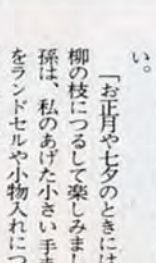 い。
「お正月や七夕のときには
柳の枝につるして楽しみまし
孫は、私のあげた小さい手ま
をランドセルや小物入れにつ